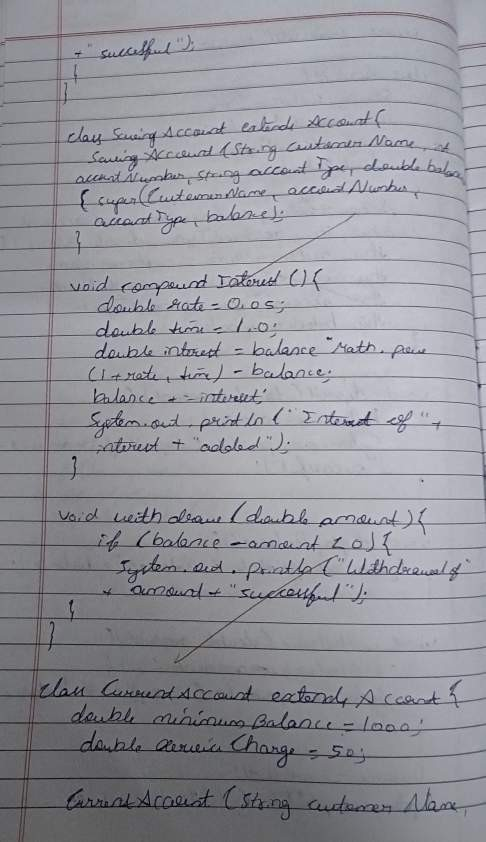 + "successful");
}
}
class Saving Account extends Account {
Saving Account (String Customer Name, int
account Number, String account Type, double balan
{ super (Customer Name, account Number,
account Type, balance);
}
void compound Interest () {
double rate = 0.05;
double time = 1.0;
double interest = balance * Math. pow
(1 + rate, time) - balance;
balance += interest;
System. out. println (" Interest of " +
interest + "added");
}
void withdraw (double amount) {
if (balance - amount < 0) {
System. out. println ("Withdrawal of"
+ amount + "successful");
}
}
class Current Account extends Account {
double minimum Balance = 1000;
double service Charge = 50;
Current Account (String customer Name,